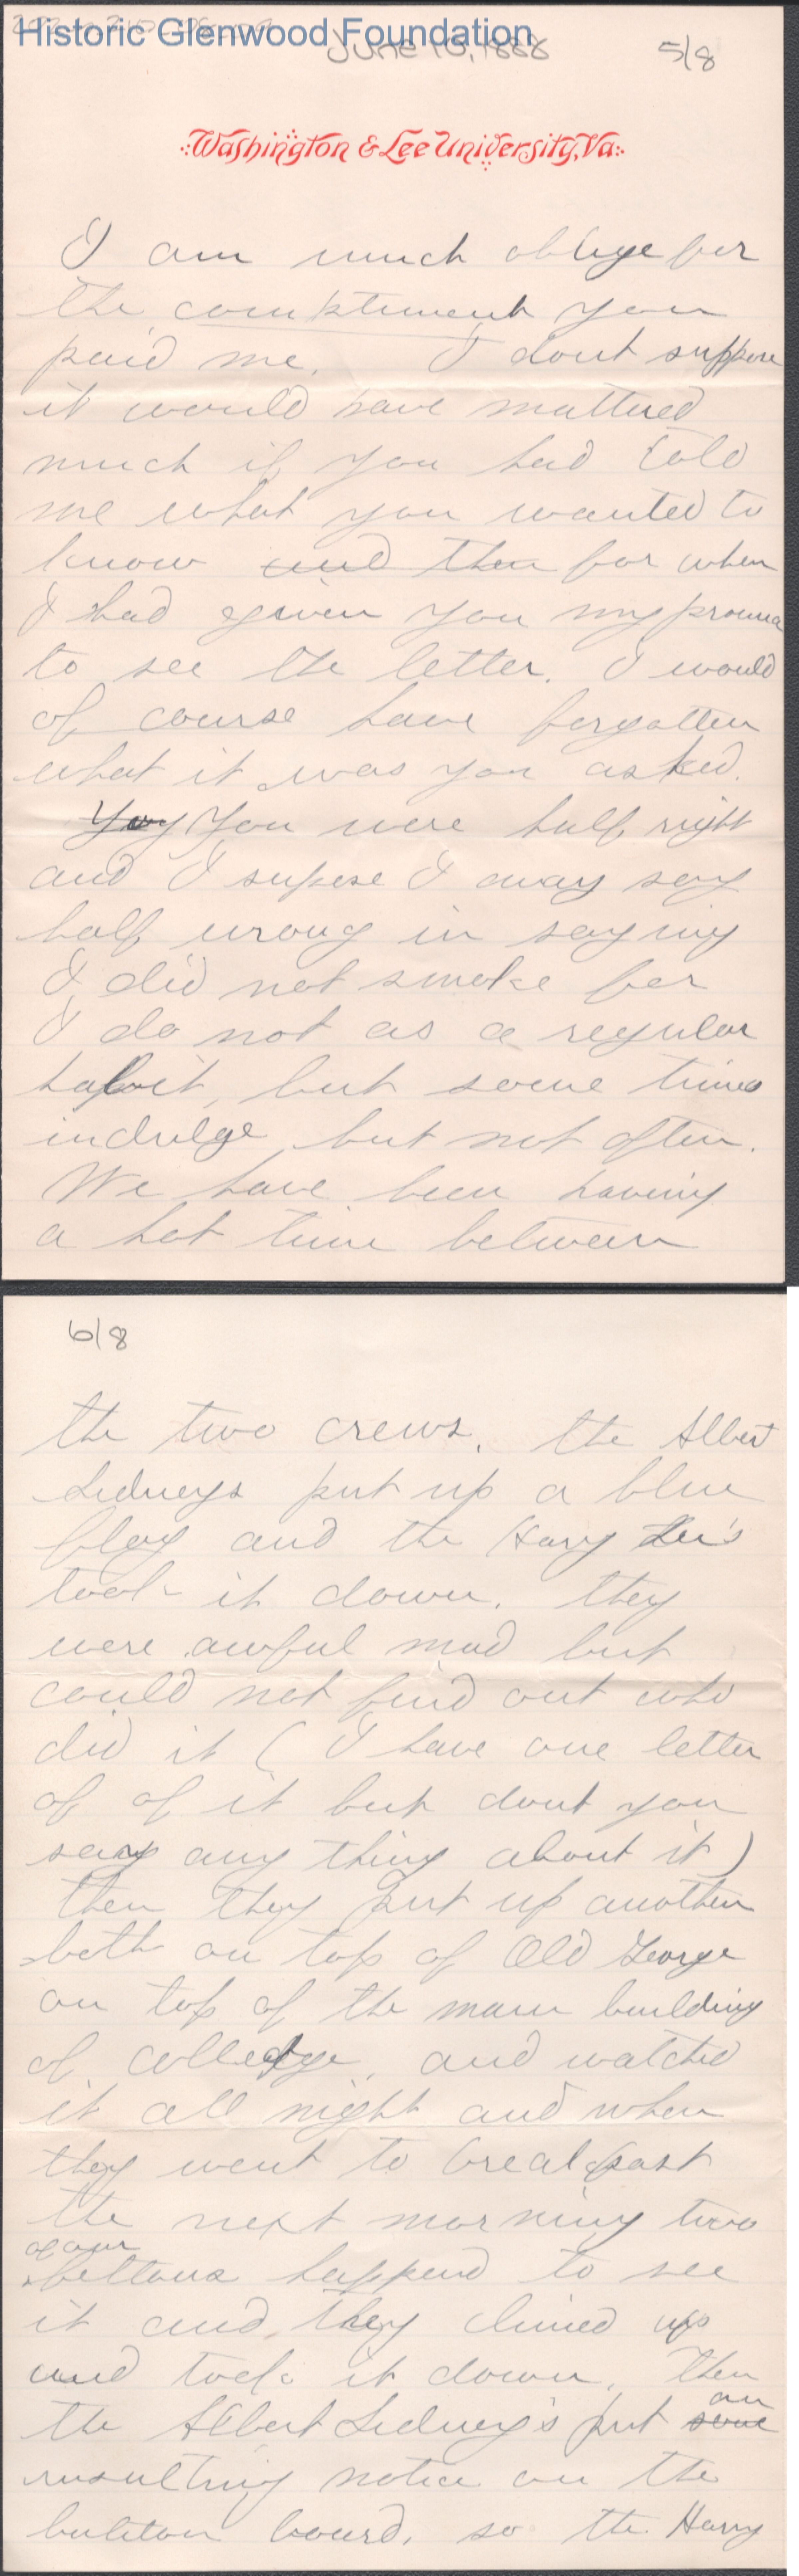 Historic Glenwood Foundation
June 10, 1888
5/8
Washington & Lee University, Va.
I am much oblige for
the compliment you
paid me. I dont suppose
it would have mattered
much if you had told
me what you wanted to
know and then for when
I had given you my promise
to see the letter. I would
of course have forgotten
what it was you asked.
You were half right
and I supose I may say
half wrong in saying
I did not smoke for
I do not as a regular
habit, but some times
indulge but not often.
We have been having
a hot time between
6/8
the two crews, the Albert
Sidneys put up a blue
flag and the Harry Lee's
took it down. they
were awful mad but
could not find out who
did it ( I have one letter
of of it but dont you
say any thing about it)
then they put up another
both on top of Old George
on top of the main building
of colledge, and watched
it all night and when
they went to breakfast
the next morning two
of our
fellows happend to see
it and they climed up
and took it down. Then
the Albert Sidney's put some an
insulting notice on the
buliton bourd, so the Harry